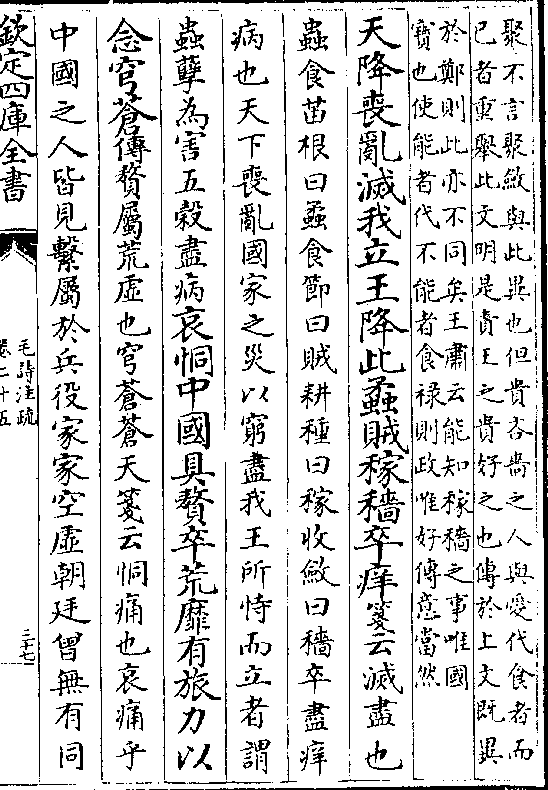 聚不言聚斂與此異也但貴吝嗇之人與愛代食者而
已者重舉此文明是責王之貴好之也傳於上文既異
於鄭則此亦不同矣王肅云能知稼穡之事唯國
寶也使能者代不能者食禄則政唯好傳意當然
天降喪亂滅我立王降此蟊賊稼穡卒痒箋云滅盡也
蟲食苗根曰蟊食節曰賊耕種曰稼收斂曰穡卒盡痒
病也天下喪亂國家之災以窮盡我王所恃而立者謂
蟲孽為害五穀盡病哀恫中國具贅卒荒靡有旅力以
念穹蒼傳贅屬荒虛也穹蒼蒼天箋云恫痛也哀痛乎
中國之人皆見繫屬於兵役家家空虛朝廷曾無有同
欽定四庫全書
毛詩注疏
卷二十五
三十七